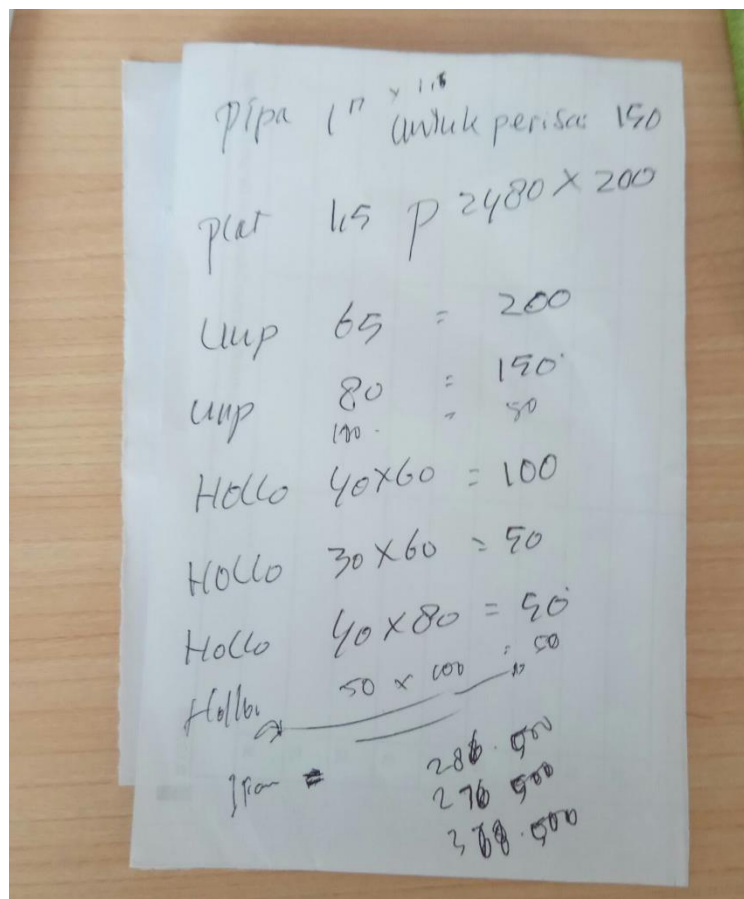 Pipa 1" x 1.5 untuk perisai 150
plat 1.5 p 2480 X 200
Unp 65 = 200
Unp 80 = 150
100 = 50
Hollo 40X60 = 100
Hollo 30X60 = 50
Hollo 40X80 = 50
Hollo 50 x 100 = 50
286.500
276 500
500